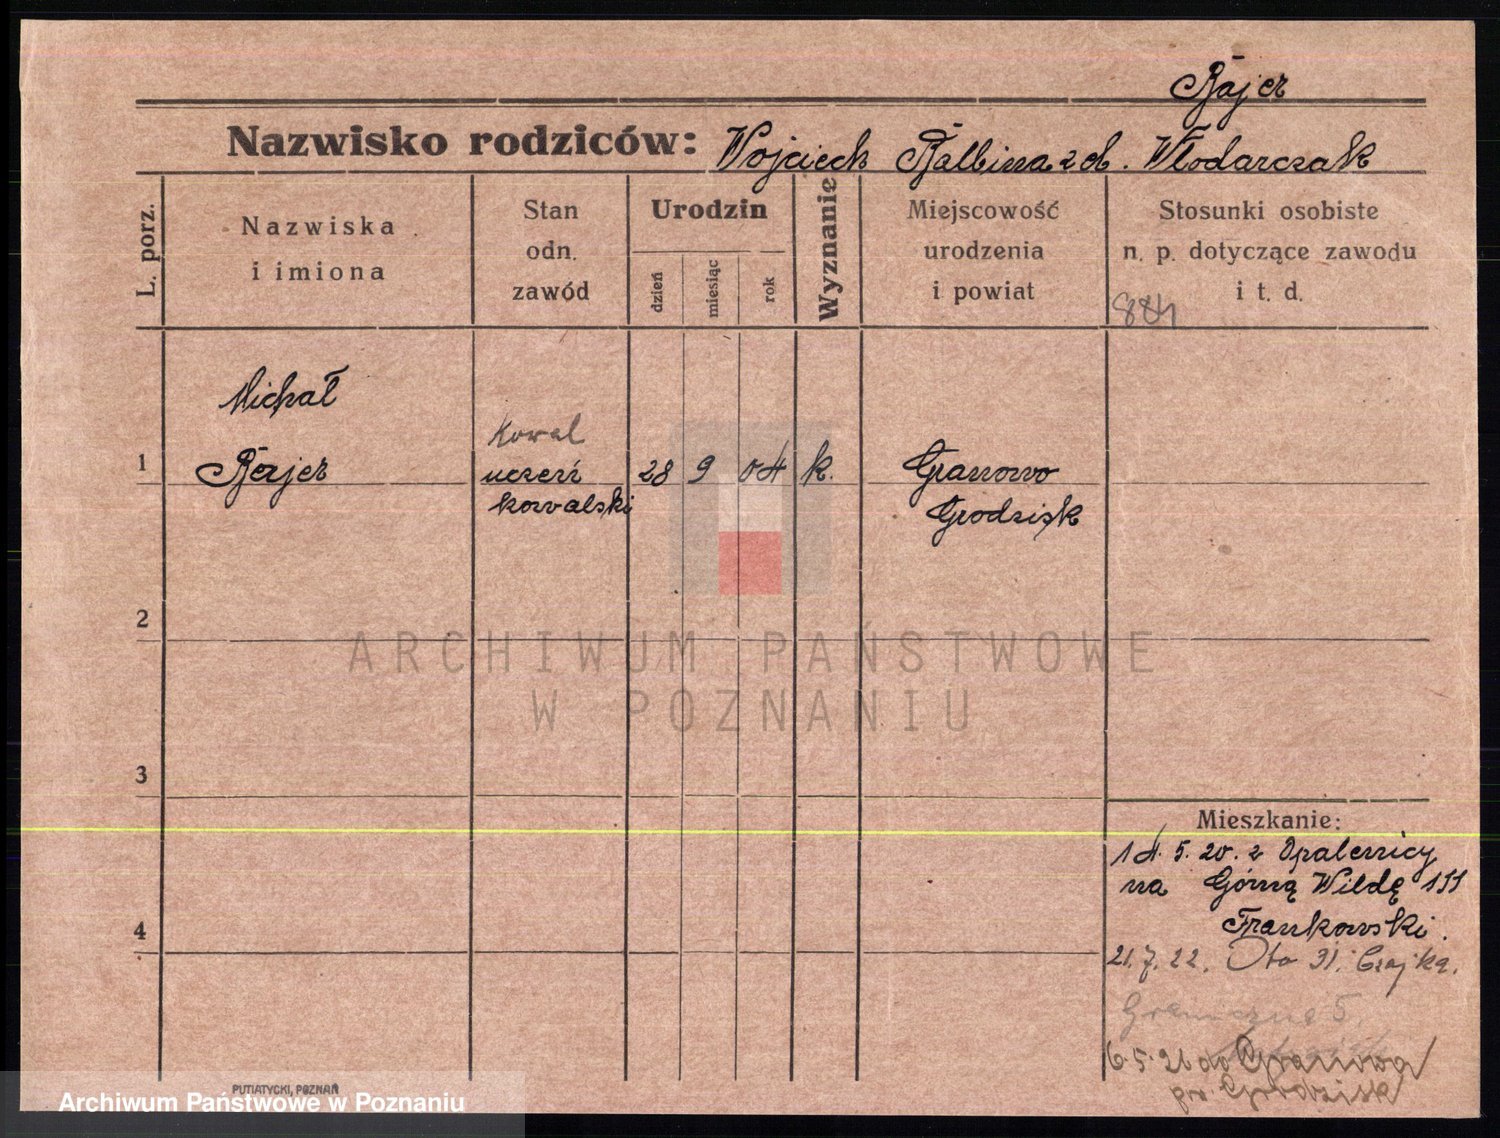 Bajer
Nazwisko rodziców: Wojciech Balbina z d. Włodarczak
L. porz.
Nazwiska
i imiona
Stan
odn.
zawód
Urodzin
dzień
miesiąc
rok
Wyznanie
Miejscowość
urodzenia
i powiat
Stosunki osobiste
n. p. dotyczące zawodu
i t. d.
884
Michał
Kowal
1 Bajer uczeń 28 9 04 k. Granowo
kowalski Grodzisk
2
ARCHIWUM PAŃSTWOWE
W POZNANIU
3
Mieszkanie:
14. 5. 20. z Opalenicy
na Górną Wildę 111
Frankowski.
4
21. 7. 22. Oto 31. Czajka.
Graniczna 5.
6.5.26 do Granowa
pow. Grodzisk
PUTIATYCKI, POZNAŃ
Archiwum Państwowe w Poznaniu